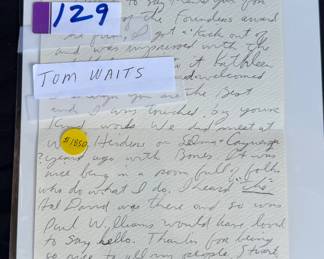 129
to say thank you for
of the Founders award
I got a kick out of
and was impressed with the
at Kathleen
welcomed
you are the Best
and I was touched by your
kind words We did meet at
TOM WAITS
$1850
Herdens on
? years ago with Bones. It was
nice being in a room full of folks
who do what I do. I heard
Hal David was there and so was
Paul Williams would have loved
to say hello. Thanks for being
so nice to all my people, Stuart,